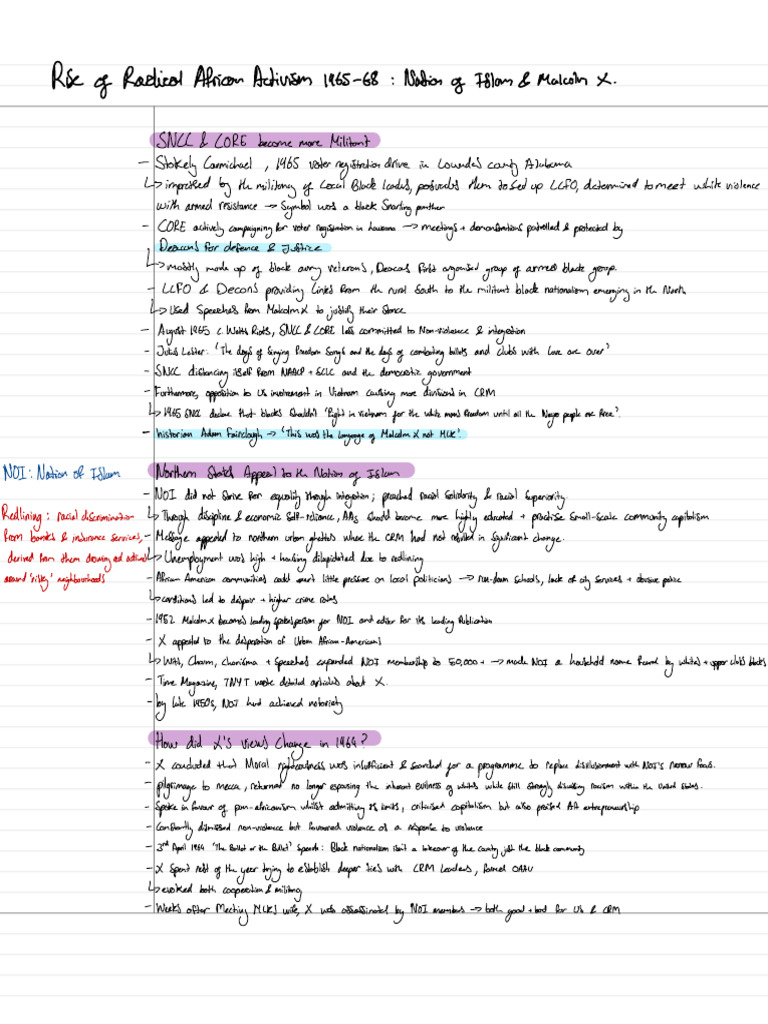 Rise of Radical African Activism 1965-68 : Nation of Islam & Malcolm X.
SNCC & CORE become more Militant
- Stokely Carmichael, 1965 voter registration drive in Lowndes county Alabama
↳ impressed by the militancy of Local Black leaders, persuades them to set up LCFO, determined to meet white violence
with armed resistance → Symbol was a black Snarling panther
- CORE actively campaigning for voter registration in Louisiana → meetings + demonstrations patrolled & protected by
Deacons for defence & Justice
↳ mostly made up of black army veterans, Deacons first organised group of armed black group.
- LCFO & Decons providing links from the rural South to the militant black nationalism emerging in the North
↳ Used Speeches from Malcolm X to justify their Stance
- August 1965 c. Watts Riots, SNCC & CORE less committed to Non-violence & integration
- Letter: 'The days of Singing freedom Songs and the days of combating bullets and clubs with Love are over'
- SNCC distancing itself from NAACP + SCLC and the democratic government
- Furthermore, opposition to US involvement in Vietnam causing more divisions in CRM
↳ 1965 SNCC declare that blacks Shouldn't 'fight in vietnam for the white mans freedom until all the Negro people are free'.
- historian Adam Fairclough → 'This was the language of Malcolm X not MLK'.
NOI: Nation of Islam
Northern States Appeal to the Nation of Islam
- NOI did not strive for equality through integration; preached racial Solidarity & racial Superiority.
Redlining: racial discrimination
↳ Through discipline & economic self-reliance, AAs should become more highly educated + practise small-scale community capitalism
from banks & insurance services,
- Message appealed to northern urban ghettos where the CRM had not resulted in significant change.
derived from them drawing red
↳ Unemployment was high + housing dilapidated due to redlining
around 'risky' neighbourhoods
- African American communities could exert little pressure on local politicians → run-down schools, lack of city services + abusive police
↳ conditions led to despair + higher crime rates
- 1952 Malcolm X becomes leading spokesperson for NOI and editor for its leading Publication
- X appealed to the desperation of Urban African-Americans
↳ Wits, Charm, charisma + Speeches expanded NOI membership to 50,000+ → made NOI a household name feared by whites + upper class blacks
- Time Magazine, TNYT wrote detailed articles about X.
- by late 1950s, NOI had achieved notoriety
How did X's views Change in 1964?
- X concluded that Moral righteousness was insufficient & searched for a programme to replace disillusionment with NOI's narrow focus.
- pilgrimage to mecca, returned no longer espousing the inherent evilness of whites while still strongly racism within the United States.
- Spoke in favour of pan-africanism whilst admitting its limits, criticised capitalism but also praised AA entrepreneurship
- Constantly dismissed non-violence but favoured violence as a response to violence
- 3rd April 1964 'The Ballot or the Bullet' Speech: Black nationalism isn't a takeover of the county just the black community
- X Spent rest of the year trying to establish deeper ties with CRM Leaders, formed OAAU
↳ evoked both cooperation & militancy
- Weeks after Meeting MLKs wife, X was assassinated by NOI members → both good + bad for US & CRM